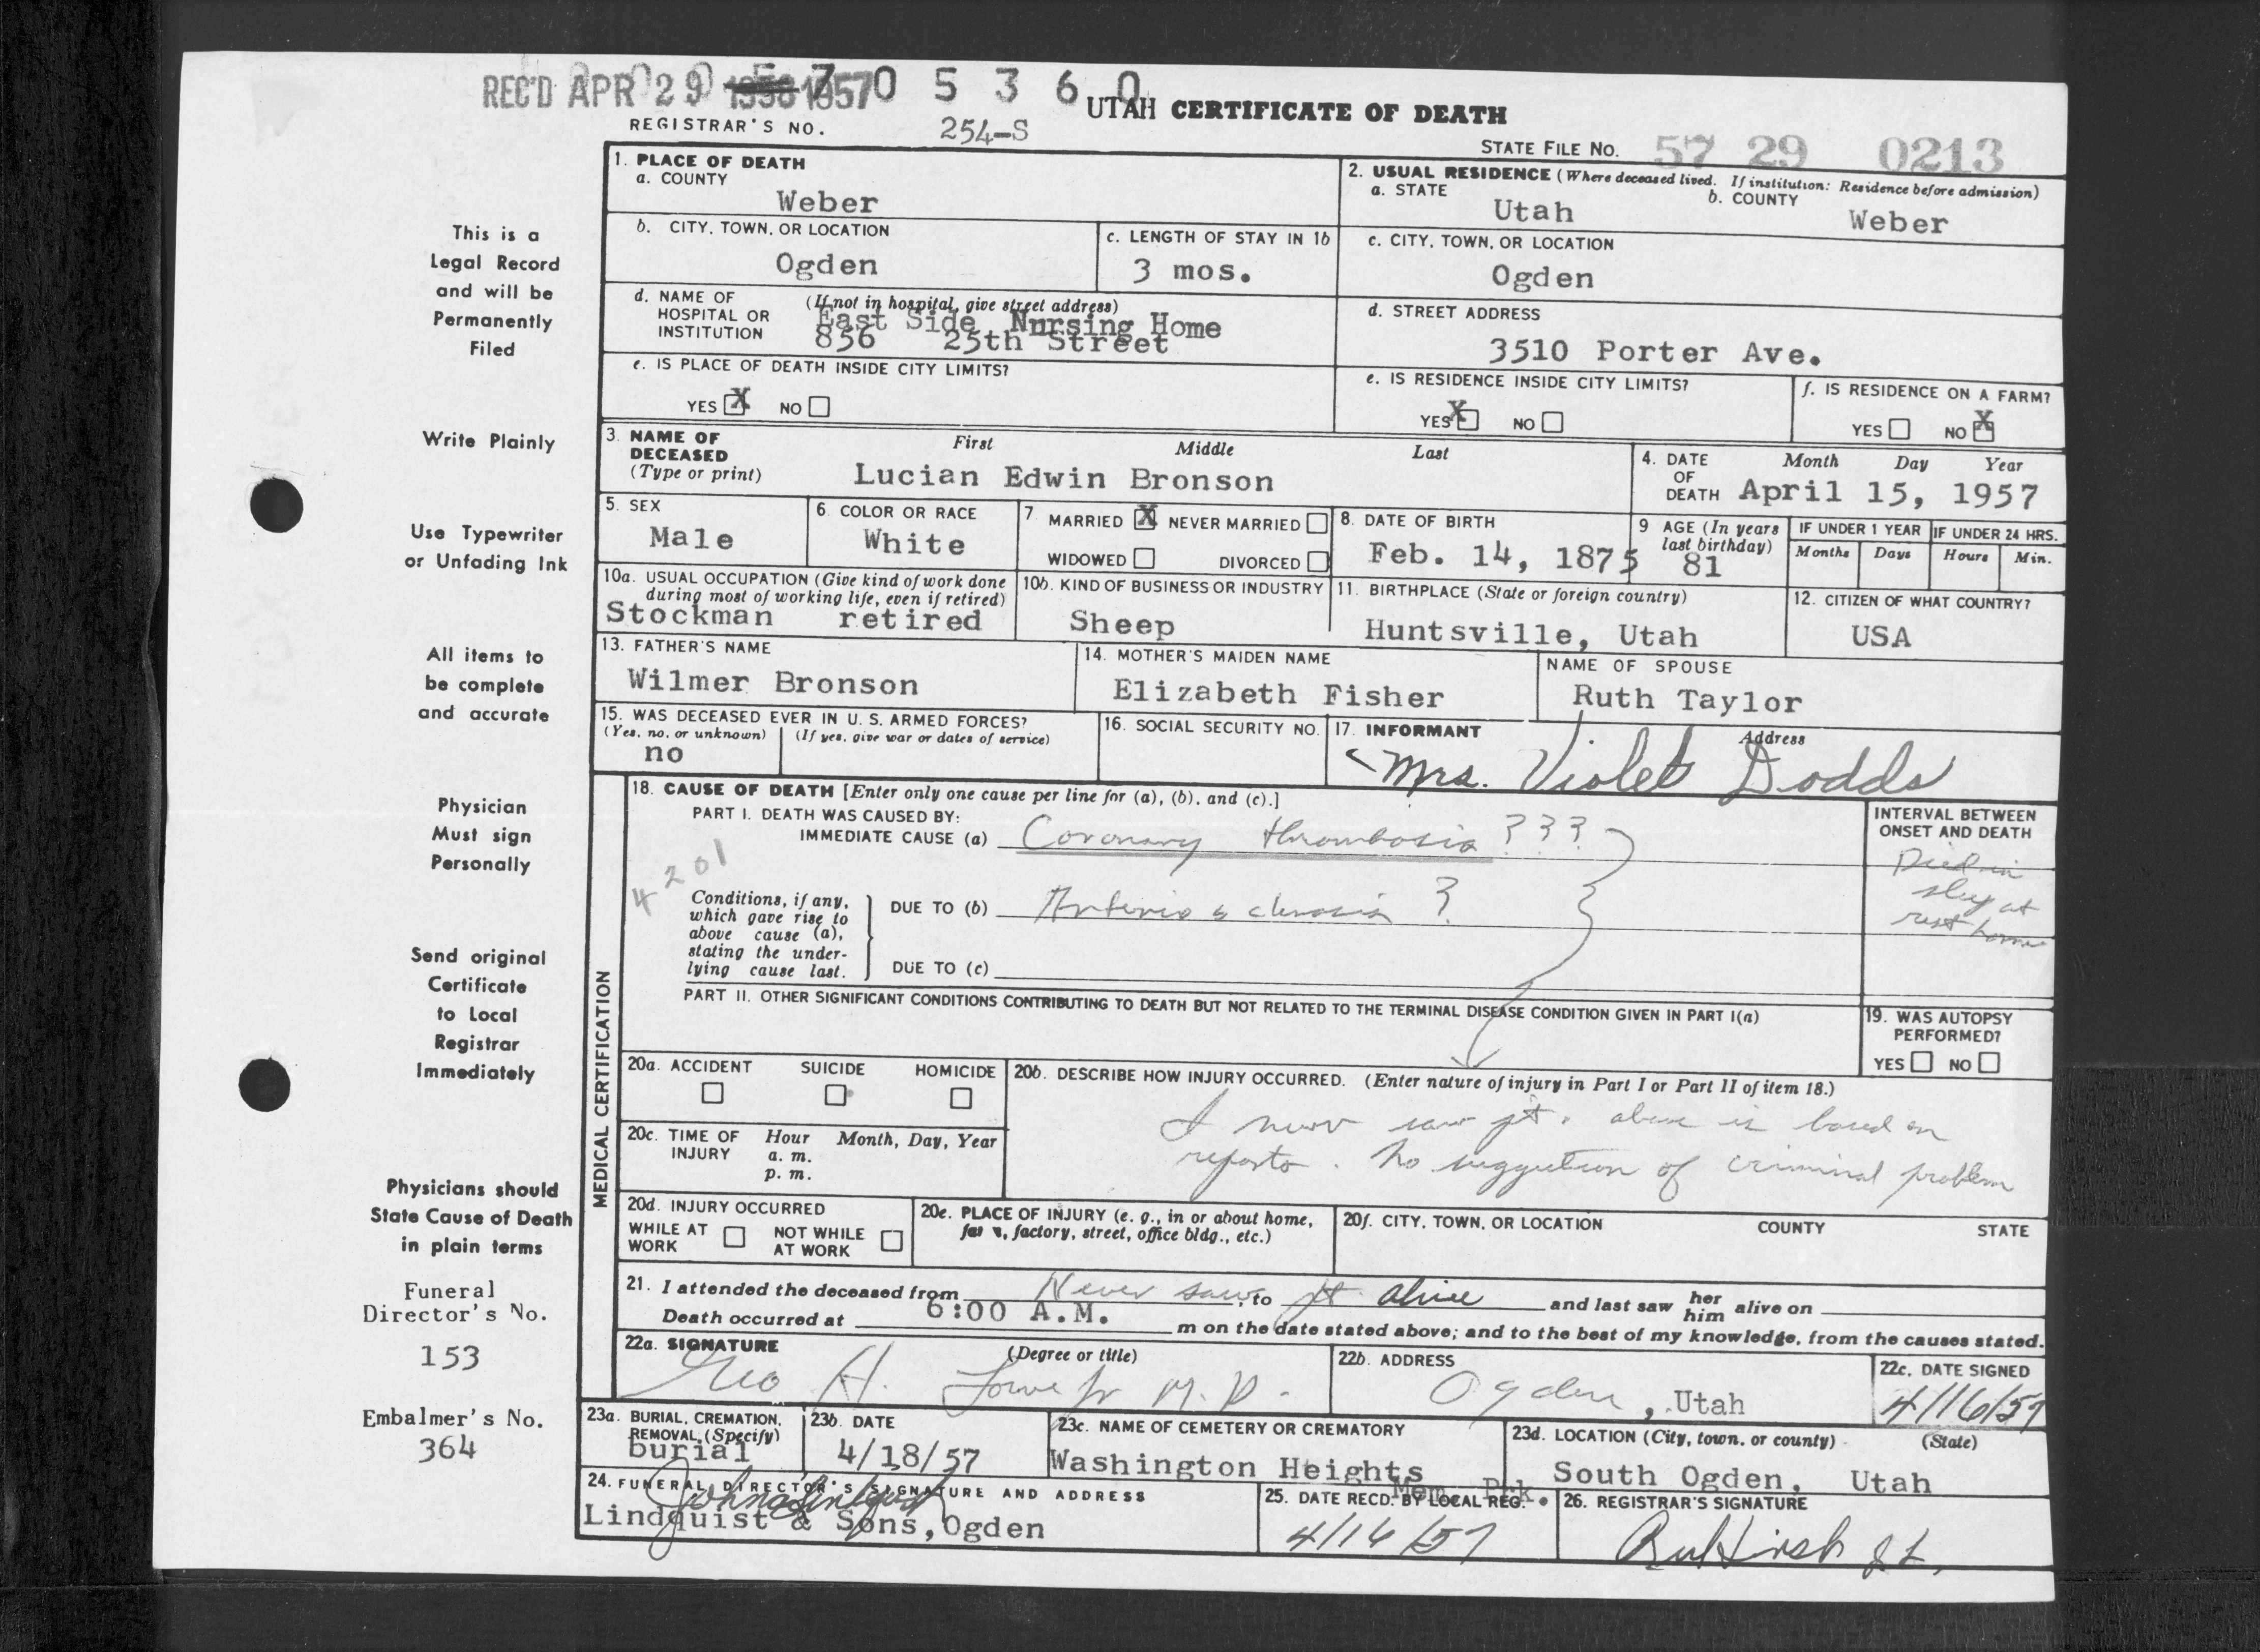 REC'D APR 29 1956 1957 0 5 3 6 0
UTAH CERTIFICATE OF DEATH
REGISTRAR'S NO. 254-S
STATE FILE NO. 57 29 0213
This is a
Legal Record
and will be
Permanently
Filed
Write Plainly
Use Typewriter
or Unfading Ink
All items to
be complete
and accurate
Physician
Must sign
Personally
Send original
Certificate
to Local
Registrar
Immediately
Physicians should
State Cause of Death
in plain terms
Funeral
Director's No.
153
Embalmer's No.
364
1. PLACE OF DEATH
a. COUNTY
Weber
2. USUAL RESIDENCE (Where deceased lived. If institution: Residence before admission)
a. STATE
Utah
b. COUNTY
Weber
b. CITY, TOWN, OR LOCATION
Ogden
c. LENGTH OF STAY IN 1b
3 mos.
c. CITY, TOWN, OR LOCATION
Ogden
d. NAME OF HOSPITAL OR INSTITUTION
(If not in hospital, give street address)
East Side Nursing Home
856 25th Street
d. STREET ADDRESS
3510 Porter Ave.
e. IS PLACE OF DEATH INSIDE CITY LIMITS?
YES X NO
e. IS RESIDENCE INSIDE CITY LIMITS?
YES X NO
f. IS RESIDENCE ON A FARM?
YES NO X
3. NAME OF DECEASED
(Type or print)
First Middle Last
Lucian Edwin Bronson
4. DATE OF DEATH
Month Day Year
April 15, 1957
5. SEX
Male
6. COLOR OR RACE
White
7. MARRIED X NEVER MARRIED
WIDOWED DIVORCED
8. DATE OF BIRTH
Feb. 14, 1875
9 AGE (In years last birthday)
81
IF UNDER 1 YEAR
Months Days
IF UNDER 24 HRS.
Hours Min.
10a. USUAL OCCUPATION (Give kind of work done during most of working life, even if retired)
Stockman retired
10b. KIND OF BUSINESS OR INDUSTRY
Sheep
11. BIRTHPLACE (State or foreign country)
Huntsville, Utah
12. CITIZEN OF WHAT COUNTRY?
USA
13. FATHER'S NAME
Wilmer Bronson
14. MOTHER'S MAIDEN NAME
Elizabeth Fisher
NAME OF SPOUSE
Ruth Taylor
15. WAS DECEASED EVER IN U. S. ARMED FORCES?
(Yes, no, or unknown) (If yes, give war or dates of service)
no
16. SOCIAL SECURITY NO.
17. INFORMANT Address
Mrs. Violet Dodds
MEDICAL CERTIFICATION
18. CAUSE OF DEATH [Enter only one cause per line for (a), (b), and (c).]
PART I. DEATH WAS CAUSED BY:
IMMEDIATE CAUSE (a) Coronary thrombosis ???
4201
Conditions, if any, which gave rise to above cause (a), stating the underlying cause last.
DUE TO (b) Arteriosclerosis ?
DUE TO (c)
INTERVAL BETWEEN ONSET AND DEATH
Died in
sleep at
rest home
PART II. OTHER SIGNIFICANT CONDITIONS CONTRIBUTING TO DEATH BUT NOT RELATED TO THE TERMINAL DISEASE CONDITION GIVEN IN PART I(a)
19. WAS AUTOPSY PERFORMED?
YES NO
20a. ACCIDENT SUICIDE HOMICIDE
20b. DESCRIBE HOW INJURY OCCURRED. (Enter nature of injury in Part I or Part II of item 18.)
I never saw pt. above is based on
reports. No suggestion of criminal problem
20c. TIME OF INJURY Hour Month, Day, Year
a. m.
p. m.
20d. INJURY OCCURRED
WHILE AT WORK NOT WHILE AT WORK
20e. PLACE OF INJURY (e. g., in or about home, farm, factory, street, office bldg., etc.)
20f. CITY, TOWN, OR LOCATION COUNTY STATE
21. I attended the deceased from Never saw, to pt alive and last saw her him alive on
Death occurred at 6:00 A.M. m on the date stated above; and to the best of my knowledge, from the causes stated.
22a. SIGNATURE (Degree or title)
Geo H. Lowe Jr M.D.
22b. ADDRESS
Ogden, Utah
22c. DATE SIGNED
4/16/57
23a. BURIAL, CREMATION, REMOVAL, (Specify)
burial
23b. DATE
4/18/57
23c. NAME OF CEMETERY OR CREMATORY
Washington Heights Mem. Prk.
23d. LOCATION (City, town, or county) (State)
South Ogden, Utah
24. FUNERAL DIRECTOR'S SIGNATURE AND ADDRESS
Lindquist & Sons, Ogden
25. DATE RECD. BY LOCAL REG.
4/16/57
26. REGISTRAR'S SIGNATURE